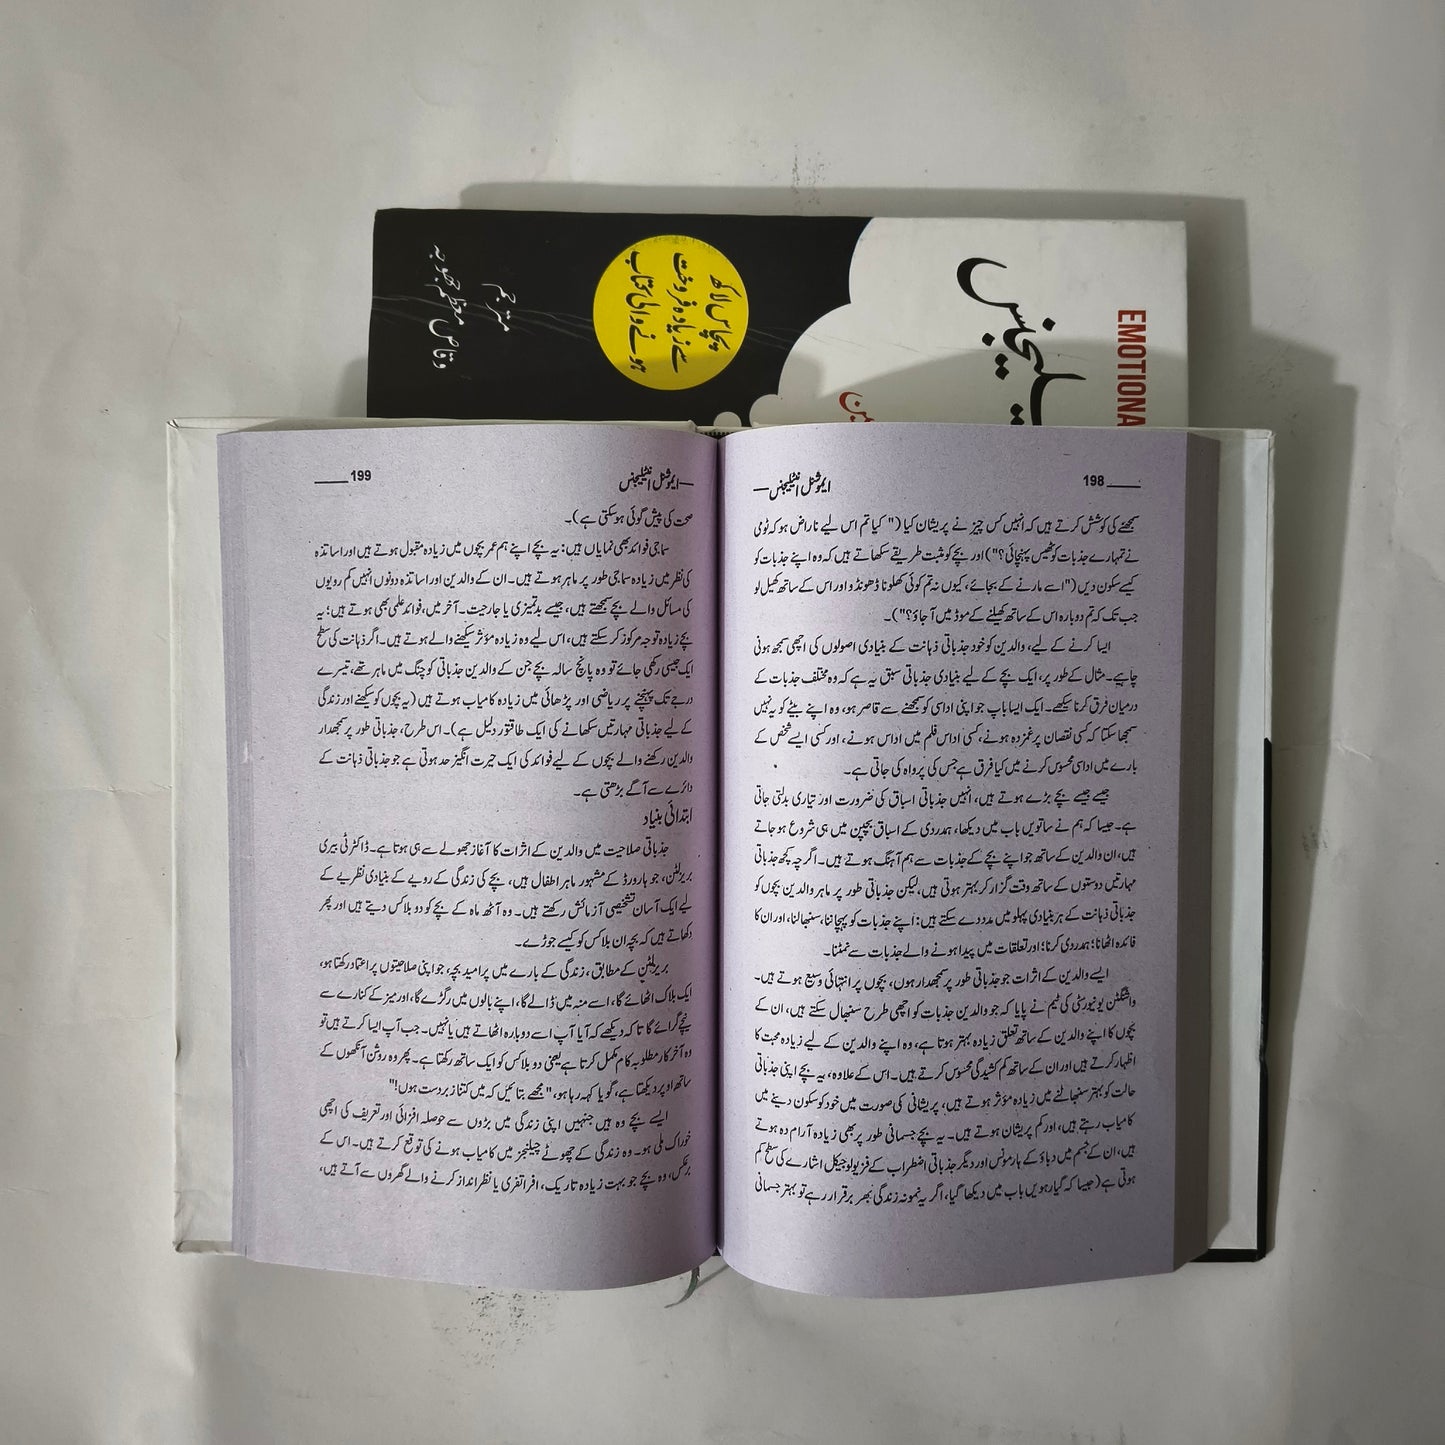 EMOTIONA
پچاس لاکھ
سے زیادہ فروخت
ہونے والی کتاب
مترجم
وقاص معظم جھوجہ
198
ایموشنل انٹیلیجنس
سمجھنے کی کوشش کرتے ہیں کہ انہیں کس چیز نے پریشان کیا (" کیا تم اس لیے ناراض ہو کہ ٹومی
نے تمہارے جذبات کو ٹھیس پہنچائی؟") اور بچے کو مثبت طریقے سکھاتے ہیں کہ وہ اپنے جذبات کو
کیسے سکون دیں ("اسے مارنے کے بجائے، کیوں نہ تم کوئی کھلونا ڈھونڈو اور اس کے ساتھ کھیل لو
جب تک کہ تم دوبارہ اس کے ساتھ کھیلنے کے موڈ میں آ جاؤ؟")۔
ایسا کرنے کے لیے، والدین کو خود جذباتی ذہانت کے بنیادی اصولوں کی اچھی سمجھ ہونی
چاہیے۔ مثال کے طور پر، ایک بچے کے لیے بنیادی جذباتی سبق یہ ہے کہ وہ مختلف جذبات کے
درمیان فرق کرنا سیکھے۔ ایک ایسا باپ جو اپنی اداسی کو سمجھنے سے قاصر ہو، وہ اپنے بیٹے کو یہ نہیں
سمجھا سکتا کہ کسی نقصان پر غمزدہ ہونے، کسی اداس فلم میں اداس ہونے، اور کسی ایسے شخص کے
بارے میں اداسی محسوس کرنے میں کیا فرق ہے جس کی پرواہ کی جاتی ہے۔
جیسے جیسے بچے بڑے ہوتے ہیں، انہیں جذباتی اسباق کی ضرورت اور تیاری بدلتی جاتی
ہے۔ جیسا کہ ہم نے ساتویں باب میں دیکھا، ہمدردی کے اسباق بچپن میں ہی شروع ہو جاتے
ہیں، ان والدین کے ساتھ جو اپنے بچے کے جذبات سے ہم آہنگ ہوتے ہیں۔ اگرچہ کچھ جذباتی
مہارتیں دوستوں کے ساتھ وقت گزار کر بہتر ہوتی ہیں، لیکن جذباتی طور پر ماہر والدین بچوں کو
جذباتی ذہانت کے ہر بنیادی پہلو میں مدد دے سکتے ہیں: اپنے جذبات کو پہچاننا، سنبھالنا، اور ان کا
فائدہ اٹھانا؛ ہمدردی کرنا؛ اور تعلقات میں پیدا ہونے والے جذبات سے نمٹنا۔
ایسے والدین کے اثرات جو جذباتی طور پر سمجھدار ہوں، بچوں پر انتہائی وسیع ہوتے ہیں۔
واشنگٹن یونیورسٹی کی ٹیم نے پایا کہ جو والدین جذبات کو اچھی طرح سنبھال سکتے ہیں، ان کے
بچوں کا اپنے والدین کے ساتھ تعلق زیادہ بہتر ہوتا ہے، وہ اپنے والدین کے لیے زیادہ محبت کا
اظہار کرتے ہیں اور ان کے ساتھ کم کشیدگی محسوس کرتے ہیں۔ اس کے علاوہ، یہ بچے اپنی جذباتی
حالت کو بہتر سنبھالنے میں زیادہ مؤثر ہوتے ہیں، پریشانی کی صورت میں خود کو سکون دینے میں
کامیاب رہتے ہیں، اور کم پریشان ہوتے ہیں۔ یہ بچے جسمانی طور پر بھی زیادہ آرام دہ ہوتے
ہیں، ان کے جسم میں دباؤ کے ہارمونس اور دیگر جذباتی اضطراب کے فزیولوجیکل اشارے کی سطح کم
ہوتی ہے (جیسا کہ گیارہویں باب میں دیکھا گیا، اگر یہ نمونہ زندگی بھر برقرار رہے تو بہتر جسمانی
199
ایموشنل انٹیلیجنس
صحت کی پیش گوئی ہو سکتی ہے)۔
سماجی فوائد بھی نمایاں ہیں: یہ بچے اپنے ہم عمر بچوں میں زیادہ مقبول ہوتے ہیں اور اساتذہ
کی نظر میں زیادہ سماجی طور پر ماہر ہوتے ہیں۔ ان کے والدین اور اساتذہ دونوں انہیں کم رویوں
کی مسائل والے بچے سمجھتے ہیں، جیسے بدتمیزی یا جارحیت۔ آخر میں، فوائد علمی بھی ہوتے ہیں؛ یہ
بچے زیادہ توجہ مرکوز کر سکتے ہیں، اس لیے وہ زیادہ مؤثر سیکھنے والے ہوتے ہیں۔ اگر ذہانت کی سطح
ایک جیسی رکھی جائے تو وہ پانچ سالہ بچے جن کے والدین جذباتی کوچنگ میں ماہر تھے، تیسرے
درجے تک پہنچنے پر ریاضی اور پڑھائی میں زیادہ کامیاب ہوتے ہیں (یہ بچوں کو سیکھنے اور زندگی
کے لیے جذباتی مہارتیں سکھانے کی ایک طاقتور دلیل ہے)۔ اس طرح، جذباتی طور پر سمجھدار
والدین رکھنے والے بچوں کے لیے فوائد کی ایک حیرت انگیز حد ہوتی ہے جو جذباتی ذہانت کے
دائرے سے آگے بڑھتی ہے۔
ابتدائی بنیاد
جذباتی صلاحیت میں والدین کے اثرات کا آغاز جھولے سے ہی ہوتا ہے۔ ڈاکٹر ٹی بیری
بریزلٹن، جو ہارورڈ کے مشہور ماہر اطفال ہیں، بچے کی زندگی کے رویے کے بنیادی نظریے کے
لیے ایک آسان تشخیصی آزمائش رکھتے ہیں۔ وہ آٹھ ماہ کے بچے کو دو بلاکس دیتے ہیں اور پھر
دکھاتے ہیں کہ بچہ ان بلاکس کو کیسے جوڑے۔
بریزلٹن کے مطابق، زندگی کے بارے میں پرامید بچہ، جو اپنی صلاحیتوں پر اعتماد رکھتا ہو،
ایک بلاک اٹھائے گا، اسے منہ میں ڈالے گا، اپنے بالوں میں رگڑے گا، اور میز کے کنارے سے
نیچے گرائے گا تا کہ دیکھے کہ آیا آپ اسے دوبارہ اٹھاتے ہیں یا نہیں۔ جب آپ ایسا کرتے ہیں تو
وہ آخر کار مطلوبہ کام مکمل کرتا ہے یعنی دو بلاکس کو ایک ساتھ رکھتا ہے۔ پھر وہ روشن آنکھوں کے
ساتھ اوپر دیکھتا ہے، گویا کہہ رہا ہو، "مجھے بتائیں کہ میں کتنا زبردست ہوں!"
ایسے بچے وہ ہیں جنہیں اپنی زندگی میں بڑوں سے حوصلہ افزائی اور تعریف کی اچھی
خوراک ملی ہو۔ وہ زندگی کے چھوٹے چیلنجز میں کامیاب ہونے کی توقع کرتے ہیں۔ اس کے
برعکس، وہ بچے جو بہت زیادہ تاریک، افراتفری یا نظر انداز کرنے والے گھروں سے آتے ہیں،